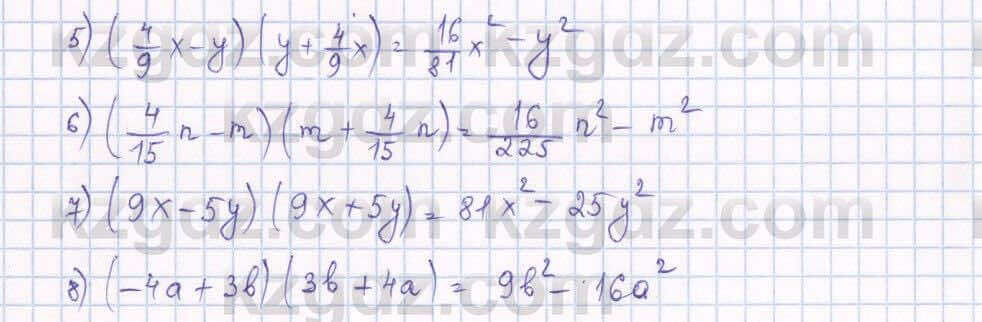 5) (4/9 x - y) (y + 4/9 x) = 16/81 x² - y²
6) (4/15 n - m) (m + 4/15 n) = 16/225 n² - m²
7) (9x - 5y) (9x + 5y) = 81x² - 25y²
8) (-4a + 3b) (3b + 4a) = 9b² - 16a²
kzgdz.com